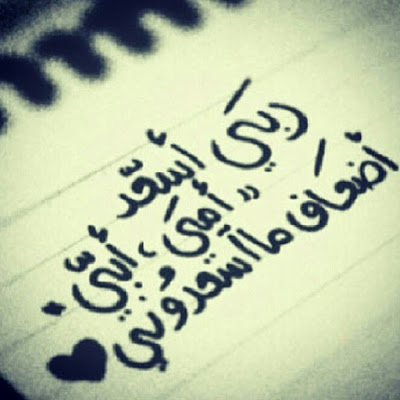 ربيَ أسعّد
" أميَ ، أبيّ "
أضعَاف ما أسعدُوني ♥